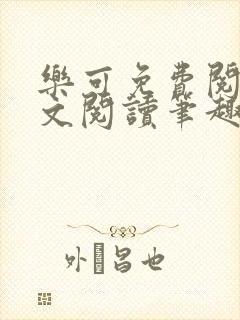 樂可免費閱
文閱讀筆趣
外昌也